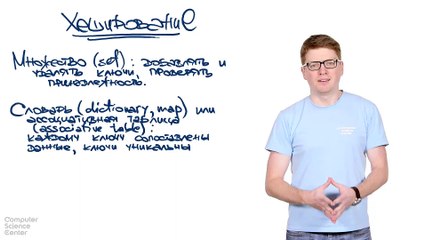 Хеширование
Множество (set): добавлять и
удалять ключи, проверять
принадлежность.
Словарь (dictionary, map) или
ассоциативная таблица
(associative table):
каждому ключу сопоставлены
данные, ключи уникальны
Computer
Science
Center